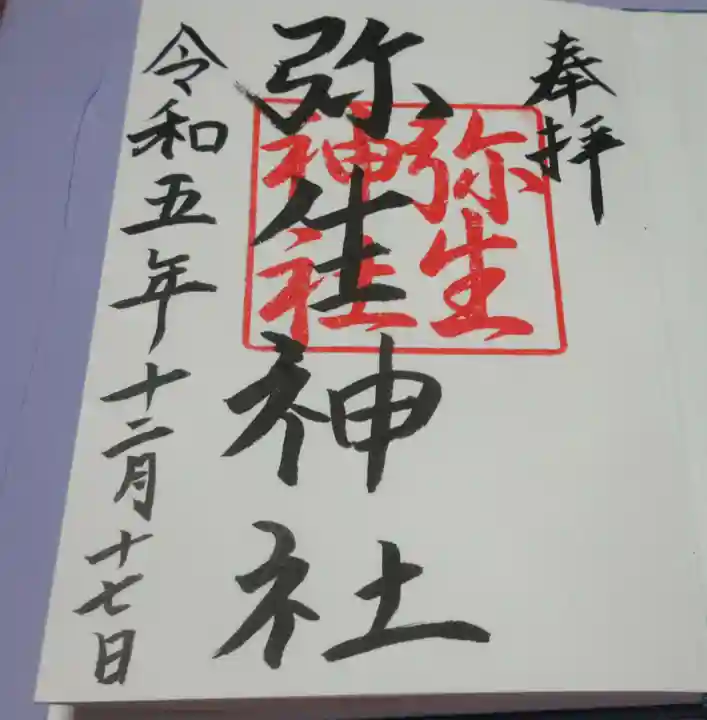 奉拝
弥生神社
弥生
神社
令和五年十二月十七日